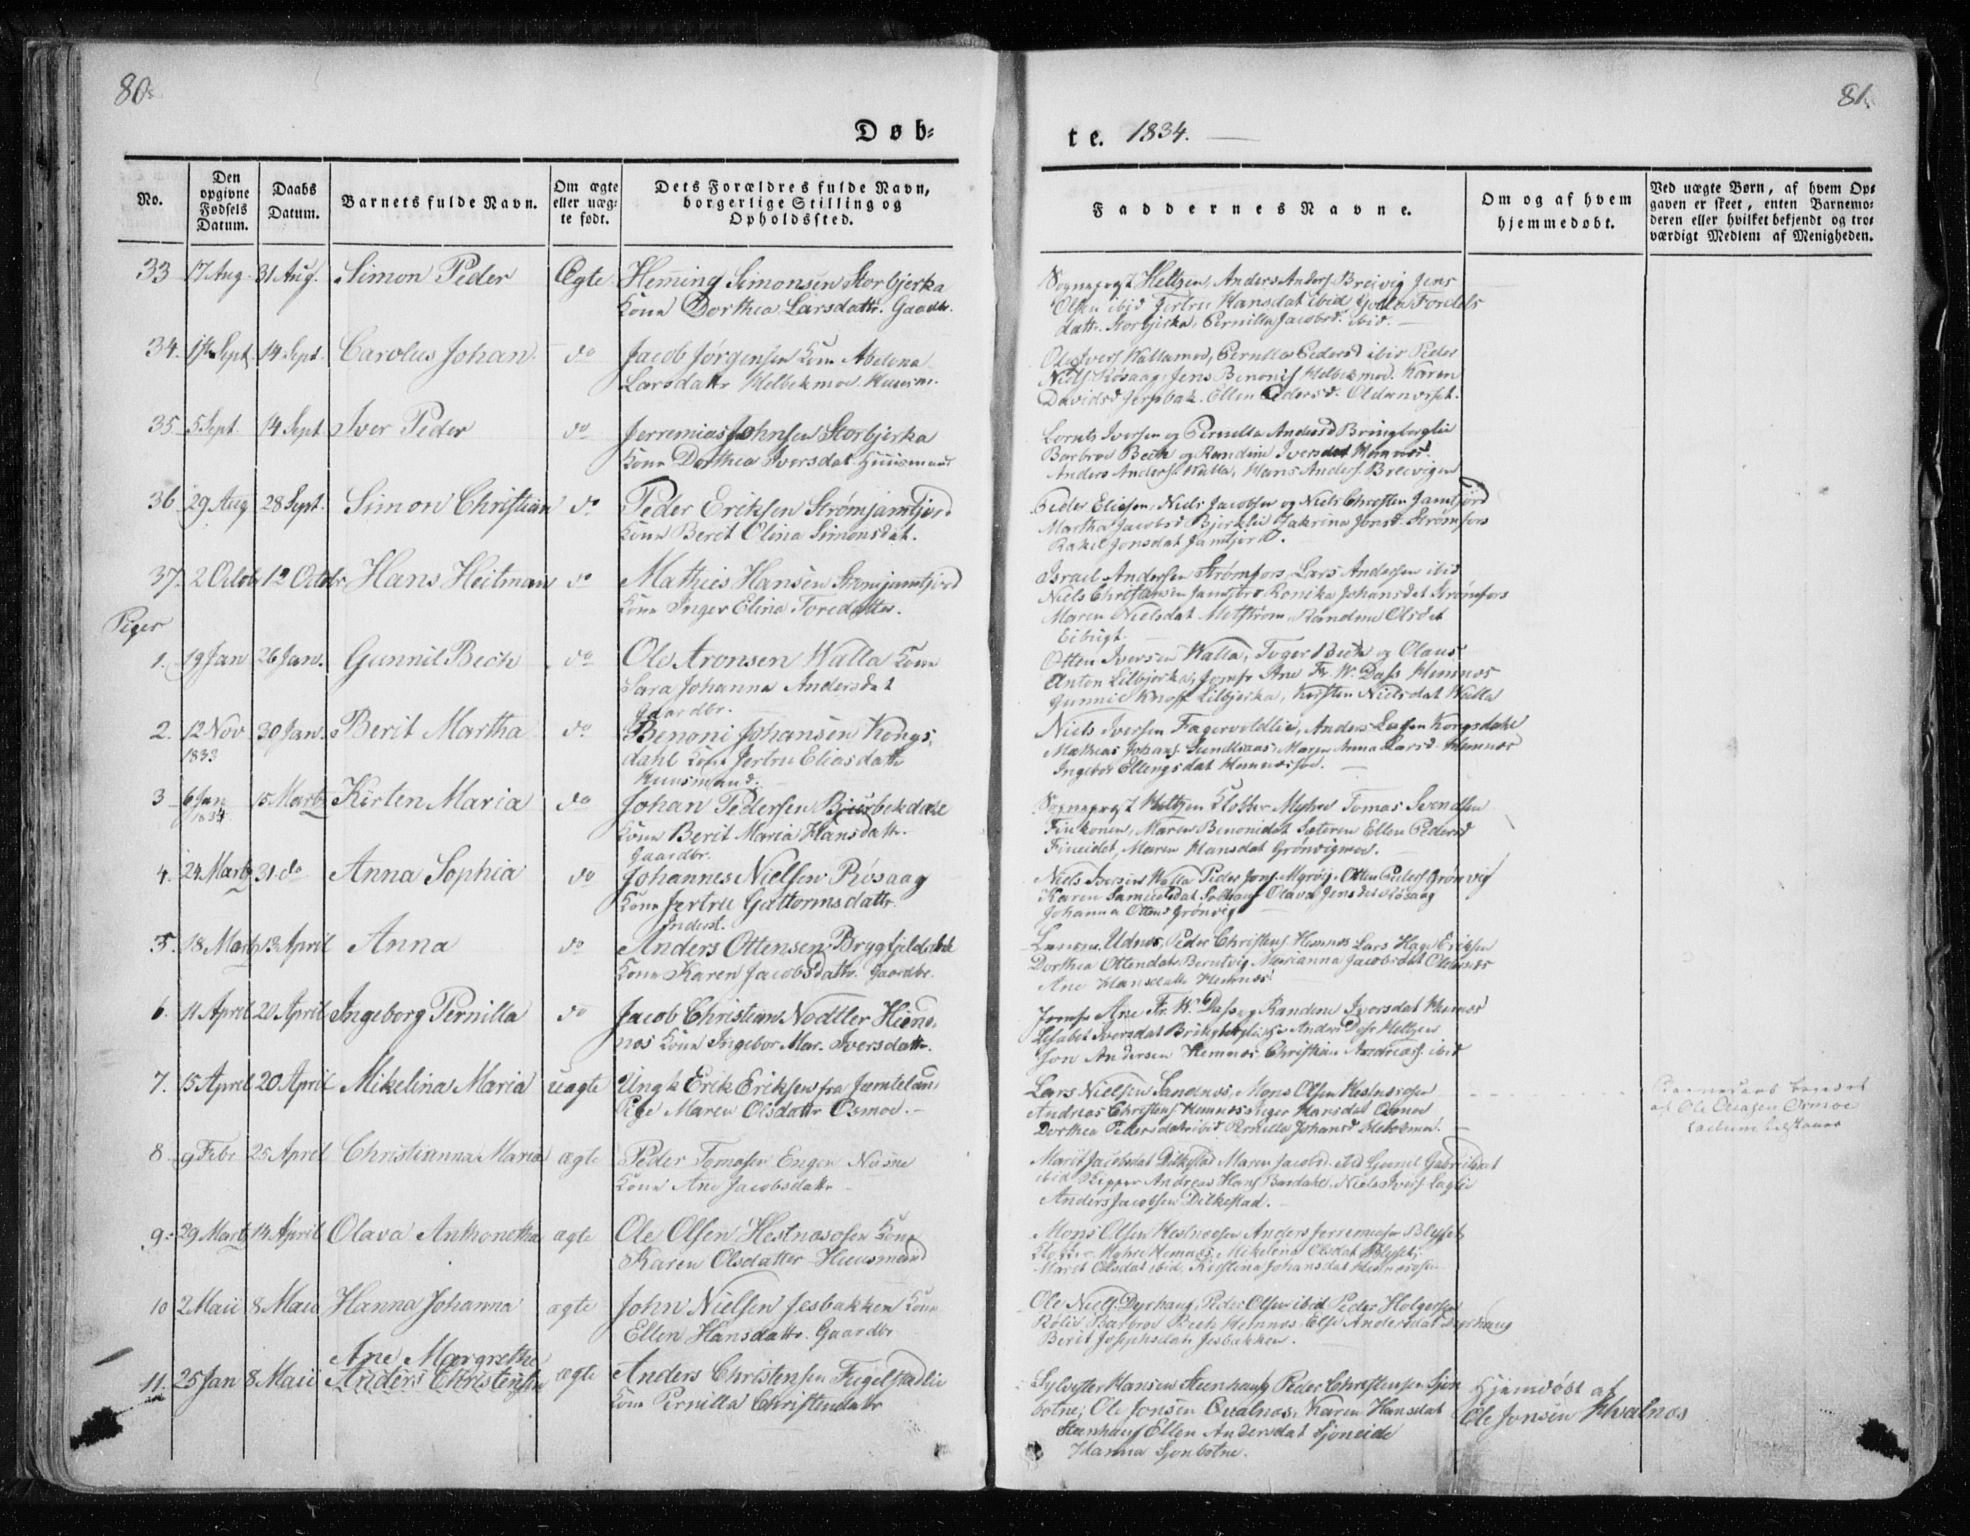 80.
81.
Døb-
te. 1834.
No.
Den opgivne Fødsels Datum.
Daabs Datum.
Barnets fulde Navn.
Om ægte eller uægte født.
Dets Forældres fulde Navn, borgerlige Stilling og Opholdssted.
Faddernes Navne.
Om og af hvem hjemmedøbt.
Ved uægte Børn, af hvem Opgaven er skeet, enten Barnemoderen eller hvilket bekjendt og troværdigt Medlem af Menigheden.
33 17 Aug. 31 Aug. Simon Peder Ægte Heming Simonsen Storbjerka
Kone Dorthea Larsdattr. Gaardbr.
Sognepræst Heltzen, Anders Anders. Breivig Jens
Olsen ibid Jertru Hansdat ibid
datt. Storbjerka, Pernilla Jacobsd. ibid.
34. 14 Sept. Carolus Johan do Jacob Jørgensen Kone Abelona
Larsdattr Helbekmoe Huusm.
Ole Ivers Wallamoe, Pernilla Pedersd ibid Peder
Niels. Røsaag, Jens Benonis Helbekmoe. Karen
Davidsd Jerpbak. Ellen Pedersd. Oldernæset.
35. 5 Sept. 14 Sept Iver Peder do Jerremias Johnsen Storbjerka
Kone Dorthea Iversdat. Huusmand
Lornts Iversen og Pernilla Andersd Bringbærglie
Barbroe Bech og Randine Iversdat Hemnes.
Anders Anders. Walla, Hans Anders. Breivigen
36 29 Aug 28 Sept. Simon Christian do Peder Eriksen Strømjamtjord
Kone Berit Olina Simonsdat.
Peder Eliesen, Niels Jacobsen og Niels Christen Jamtjord
Martha Jacobsd Bjerklie Jonsd. Strømfors
Rakel Jonsdat Jamtjord.
37. 2 Octob 12 Octobr. Hans Heitman do Mathies Hansen Strømjamtjord
Kone Inger Elina Toredatter.
Israel Andersen Strømfors, Lars Andersen ibid
Niels Christensen Jamtjord Ronika Johansdat Strømfors
Maren Nielsdat Randine Olsdat
Piger
1. 19 Jan 26 Jan. Gunnil Bech do Ole Aronsen Walla Kone
Sara Johanna Andersdat
Gaardbr.
Otten Iversen Walla, Toger Bech og Olaus
Anton Lilbjerka, Jomfr Ane Fr. W. Dass Hemnes
Gunnil Knoff Lilbjerka, Kirsten Nielsdat Walla
2. 12 Nov 1833 30 Jan. Berit Martha do Benoni Johansen Kongs-
dahl Kone Jertru Eliasdattr
Huusmand.
Niels Iversen Fagervoldlie, Anders Kongsdahl
Mathias Johans. Maren Anna Larsd. Hemnes
Ingebor Ellingsdat
3 6 Jan 1834 15 Marts Kirsten Maria do Johan Pedersen Bjurbekdal
Kone Berit Maria Hansdattr.
Gaardbr.
Sognepræst Heltzen Klokker Myhre Tomas Svendsen
Finkonen, Maren Benonidat Sæteren Ellen Pedersd
Fineidet, Maren Hansdat Grønvigmoe.
4. 24 Marts 31 do Anna Sophia do Johannes Nielsen Røsaag
Kone Jertru Guttormsdattr.
Inderst.
Niels Iversen Walla Peder Jons. Otten Peders. Grønvig
Karen Samuelsdat Olava Jensdat Røsaag
Johanna Ottens Grønvig
5. 18 Marts 13 April Anna do Anders Ottensen Brygfjeldsbek
Kone Karen Jacobsdattr. Gaardbr.
Udnes, Peder Christens. Hemnes Lars Hage Eriksen
Dorthea Ottendatr Marianna Jacobsdat
Ane Hansdattr Hemnes
6. 11 April 20 April Ingeborg Pernilla do Jacob Christian Nodtler Hem-
nes Kone Ingebor Mar. Iversdattr.
Jomfr Ane Fr. W. Dass, Randine Iversdat Hemnes
Lisabet Iversdat Anders Dass Heltzen
Jon Andersen Hemnes, Christian Andreas. ibid
7. 15 April 20 April Mikelina Maria uægte Ungk. Erik Eriksen fra Jemteland
Pige Maren Olsdattr Osmoe.
Lars Nielsen Sandnes, Mons Olsen Hestnesosen
Andreas Christens. Hemnes, Inger Hansdat Osmoe
Dorthea Pedersdat ibid Pernilla Johansd Helbekmoe.
af Ole Osmoe
8 9 Febr 25 April Christianna Maria ægte Peder Tomasen
Kone Ane Jacobsdattr
Marit Jacobsdat Dilkestad Maren Jacobsd. ibid Gabrielsdat
ibid Skipper Andreas Hans Bardahl. Niels Ivers.
Anders Jacobsen Dilkestad.
9. 29 Marts 14 April Olava Anthonetha ægte Ole Olsen Hestnesosen Kone
Karen Olsdatter Huusmand
Mons Olsen Hestnesosen Anders Jerremiasen
Klokker Myhre Hemnes, Mikelena Olsdat
Marit Olsdat ibid, Kirstina Johansdat Hestnesosen
10 2 Maii 8 Maii Hanna Johanna ægte John Nielsen Jesbakken Kone
Ellen Hansdattr. Gaardbr
Ole Niels. Dyrhaug, Peder Olsen ibid Peder Holgersen
Rølie Barbroe Bech Hemnes Else Andersdat Dyrhaug
Berit Josephsdat Jesbakken.
11. 25 Jan 8 Maii Ane Margrethe
Anders Christensen ægte Anders Christensen Fugelstadlie
Kone Pernilla Christendatr
Sylvester Hansen Steenhaug Peder Christensen Sjon
botne; Ole Jonsen Qvalnes, Karen Hansdat
Steenhaug Ellen Andersdat Sjoneide
Hanna Sjonbotne.
Hjemdøbt af
Ole Jonsen Hvalnes